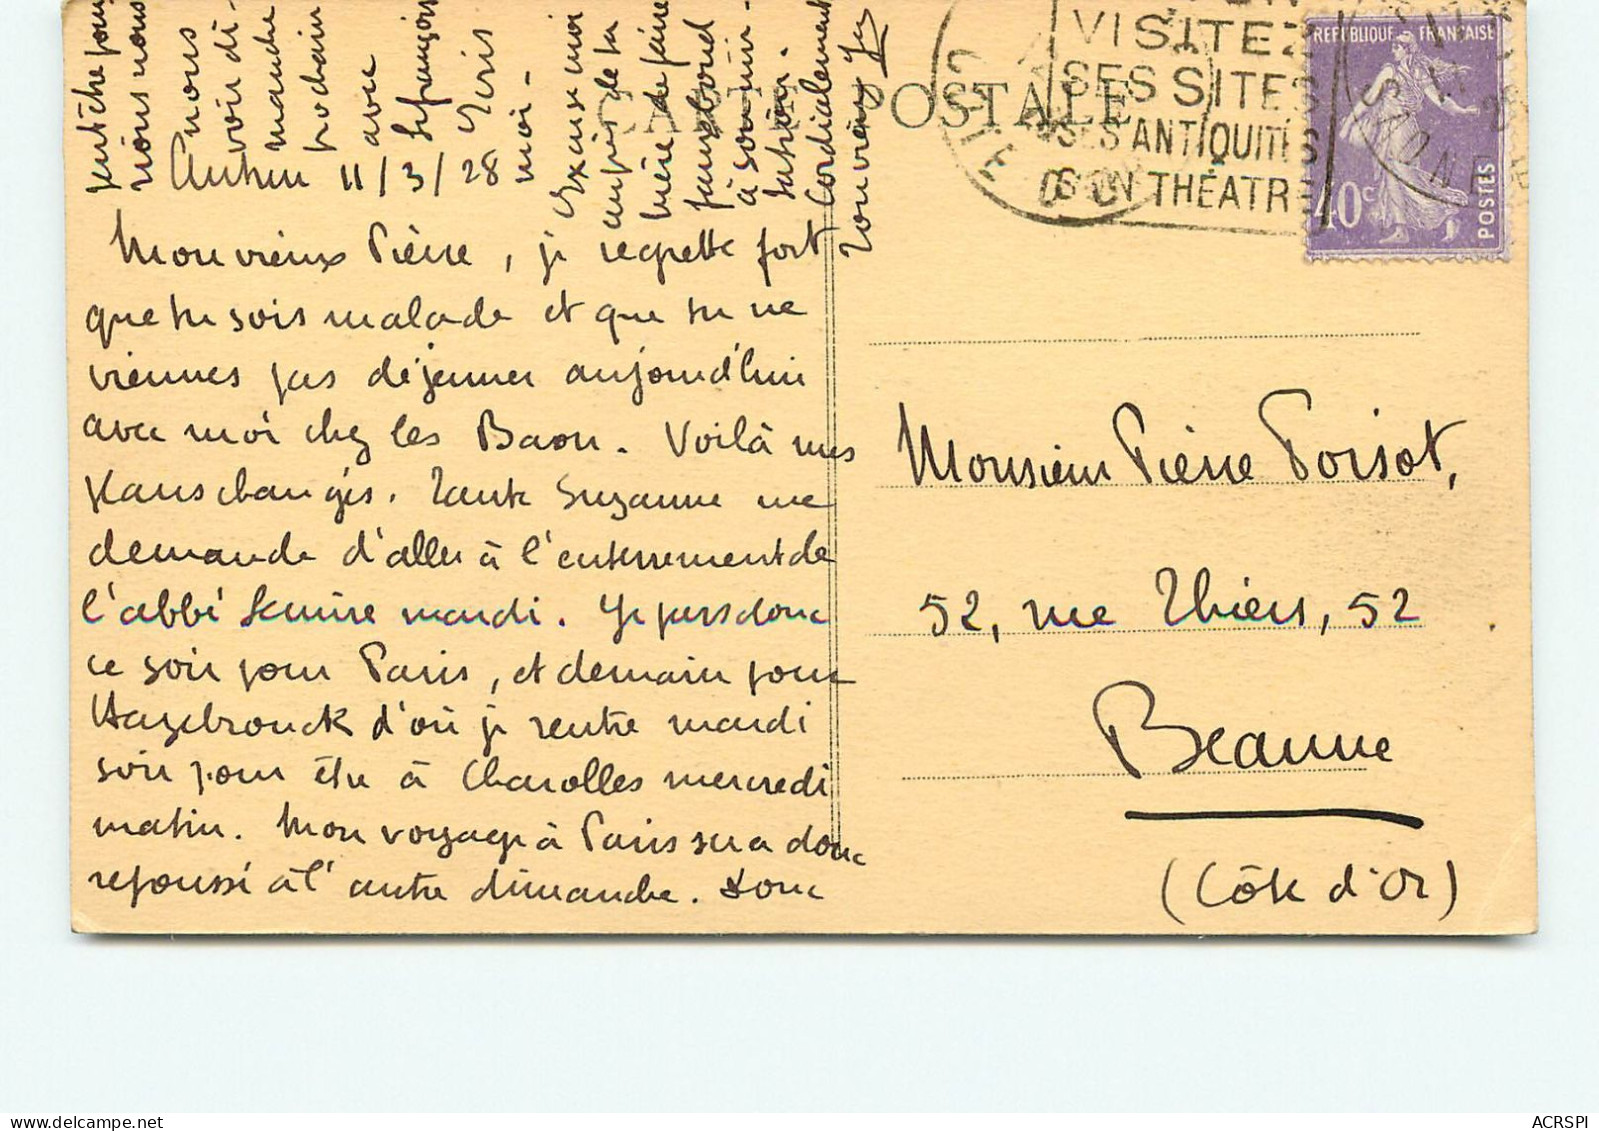 Autun 11/3/28
Mon vieux Pierre, je regrette fort
que tu sois malade et que tu ne
viennes pas déjeuner aujourd'hui
avec moi chez les Baon. Voilà mes
plans changés. Tante Suzanne me
demande d'aller à l'enterrement de
l'abbé mardi. Je pars donc
ce soir pour Paris, et demain pour
Hazebrouck d'où je rentre mardi
soir pour être à Charolles mercredi
matin. Mon voyage à Paris sera donc
repoussé à l'autre dimanche. Donc
nous
voir di-
manche
prochain
avec
le français
Ecris
moi -
Excuse moi
auprès de ta
mère de faire
faux bond
à son in-
vitation.
Cordialement
Ton vieux
CARTE POSTALE
VISITEZ
SES SITES
SES ANTIQUITÉS
SON THÉATRE
SAONE
REPUBLIQUE FRANÇAISE
40c
POSTES
Monsieur Pierre Poisot,
52, rue Thiers, 52
Beaune
(Côte d'Or)
ACRSPI